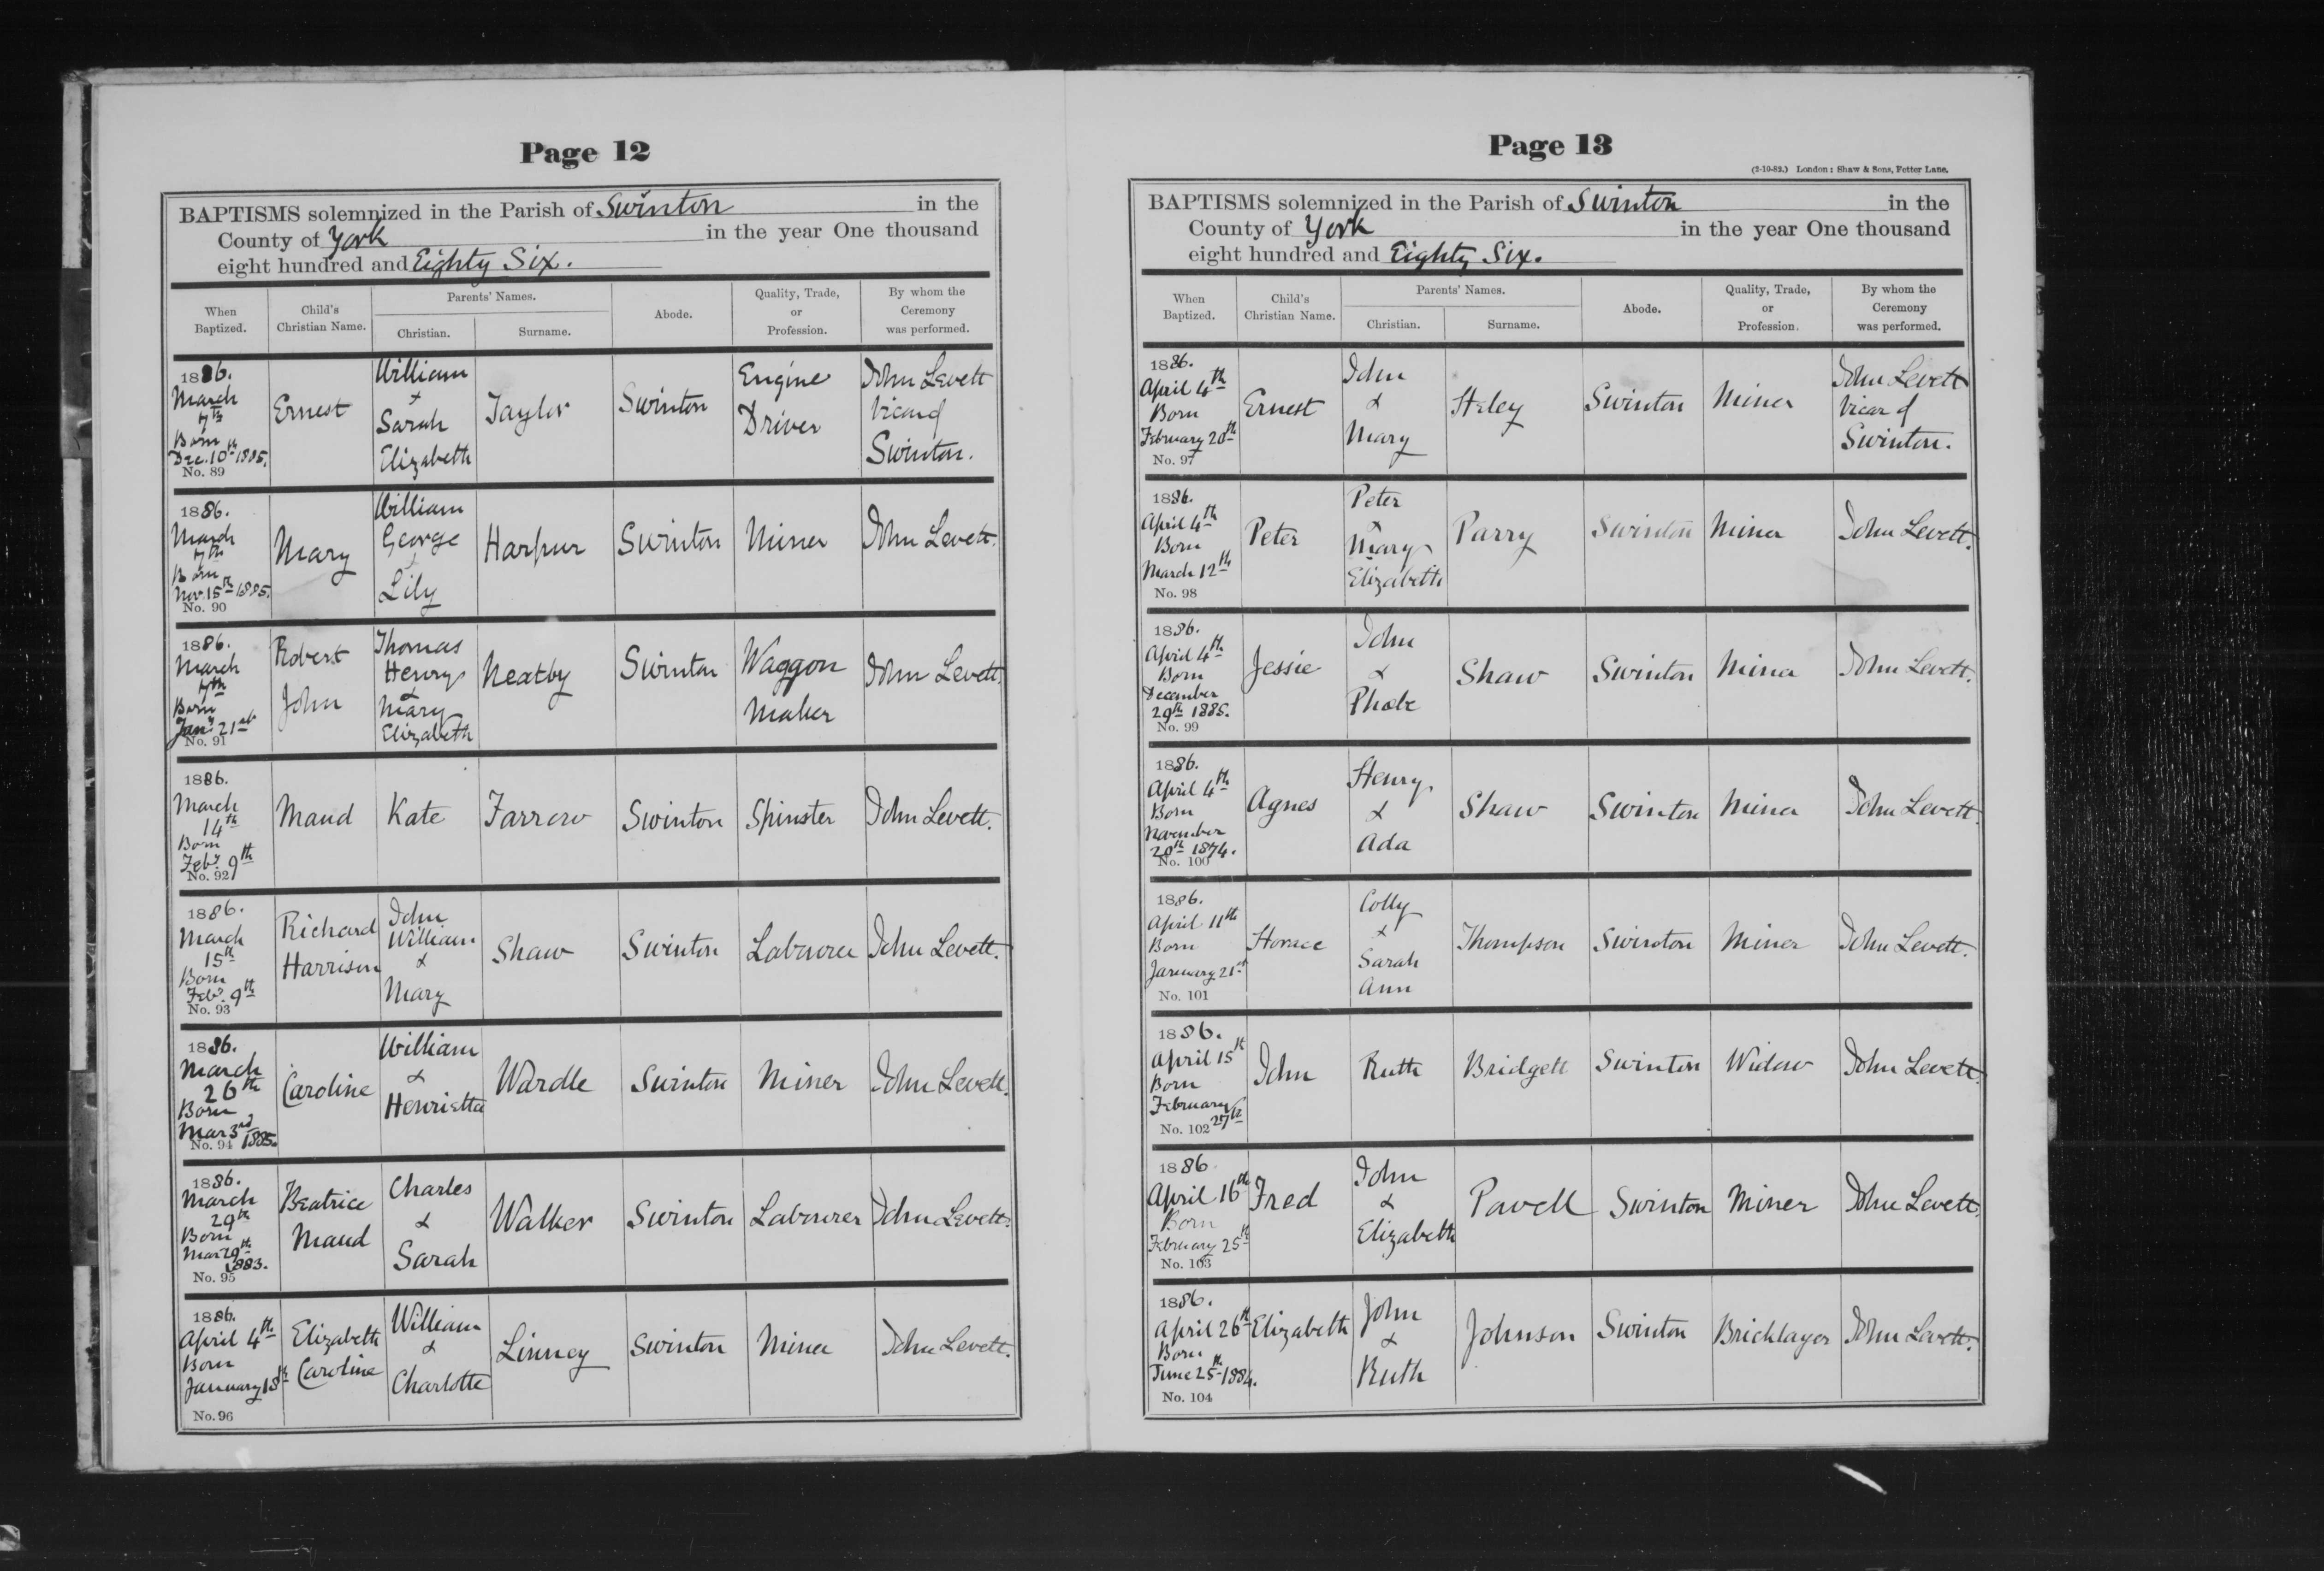 Page 12
BAPTISMS solemnized in the Parish of Swinton in the
County of York in the year One thousand
eight hundred and Eighty Six.
When Baptized. Child's Christian Name. Parents' Names. Christian. Surname. Abode. Quality, Trade, or Profession. By whom the Ceremony was performed.
1886. March 7th Born Dec. 10th 1885. No. 89 Ernest William & Sarah Elizabeth Taylor Swinton Engine Driver John Levett Vicar of Swinton.
1886. March 7th Born Nov. 15th 1885. No. 90 Mary William George & Lily Harpur Swinton Miner John Levett.
1886. March 7th Born Jany 21st No. 91 Robert John Thomas Henry & Mary Elizabeth Neatby Swinton Waggon Maker John Levett.
1886. March 14th Born Feby. 9th No. 92 Maud Kate Farrow Swinton Spinster John Levett.
1886. March 15th Born Feby. 9th No. 93 Richard Harrison John William & Mary Shaw Swinton Labourer John Levett.
1886. March 26th Born Mar 3rd 1885. No. 94 Caroline William & Henrietta Wardle Swinton Miner John Levett.
1886. March 29th Born Mar 29th 1883. No. 95 Beatrice Maud Charles & Sarah Walker Swinton Labourer John Levett.
1886. April 4th Born January 18th No. 96 Elizabeth Caroline William & Charlotte Linney Swinton Miner John Levett.
Page 13
(2-10-82.) London: Shaw & Sons, Fetter Lane.
BAPTISMS solemnized in the Parish of Swinton in the
County of York in the year One thousand
eight hundred and Eighty Six.
When Baptized. Child's Christian Name. Parents' Names. Christian. Surname. Abode. Quality, Trade, or Profession. By whom the Ceremony was performed.
1886. April 4th Born February 20th No. 97 Ernest John & Mary Heley Swinton Miner John Levett Vicar of Swinton.
1886. April 4th Born March 12th No. 98 Peter Peter & Mary Elizabeth Parry Swinton Miner John Levett.
1886. April 4th Born December 29th 1885. No. 99 Jessie John & Phoebe Shaw Swinton Miner John Levett.
1886. April 4th Born November 20th 1874. No. 100 Agnes Henry & Ada Shaw Swinton Miner John Levett.
1886. April 11th Born January 21st No. 101 Horace Colly & Sarah Ann Thompson Swinton Miner John Levett.
1886. April 15th Born February 27th No. 102 John Ruth Bridgett Swinton Widow John Levett.
1886 April 16th Born February 25th No. 103 Fred John & Elizabeth Powell Swinton Miner John Levett.
1886. April 26th Born June 25th 1884. No. 104 Elizabeth John & Ruth Johnson Swinton Bricklayer John Levett.